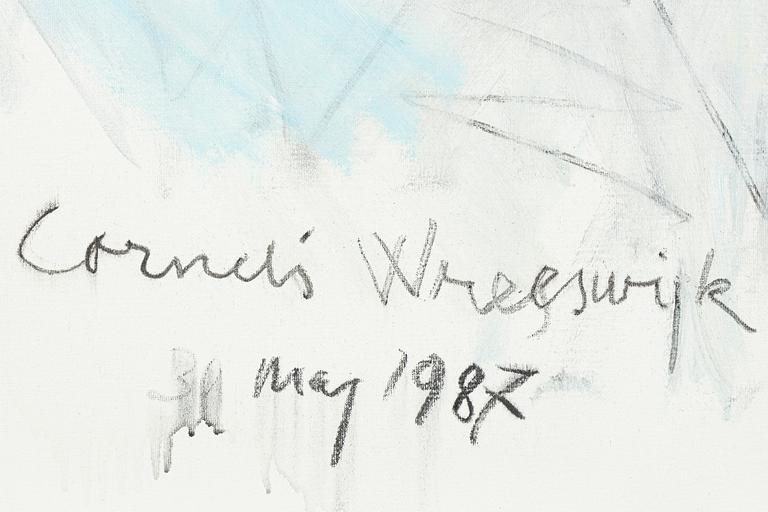 Cornelis Wreeswijk
30 Maj 1987